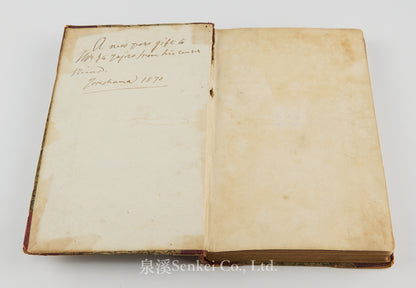 A new years gift to
from his
friend.
Yokohama 1870
泉溪Senkei Co., Ltd.